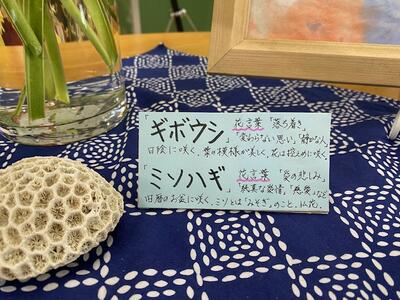 「ギボウシ」 花言葉 「落ち着き」
「変わらない思い」「静かな人」
日陰に咲く、葉の模様が美しく、花は控えめに咲く。
「ミソハギ」 花言葉 「愛の悲しみ」
「純真な愛情」「慈悲」など
旧暦のお盆に咲く、ミソとは「みそぎ」のこと、仏花。